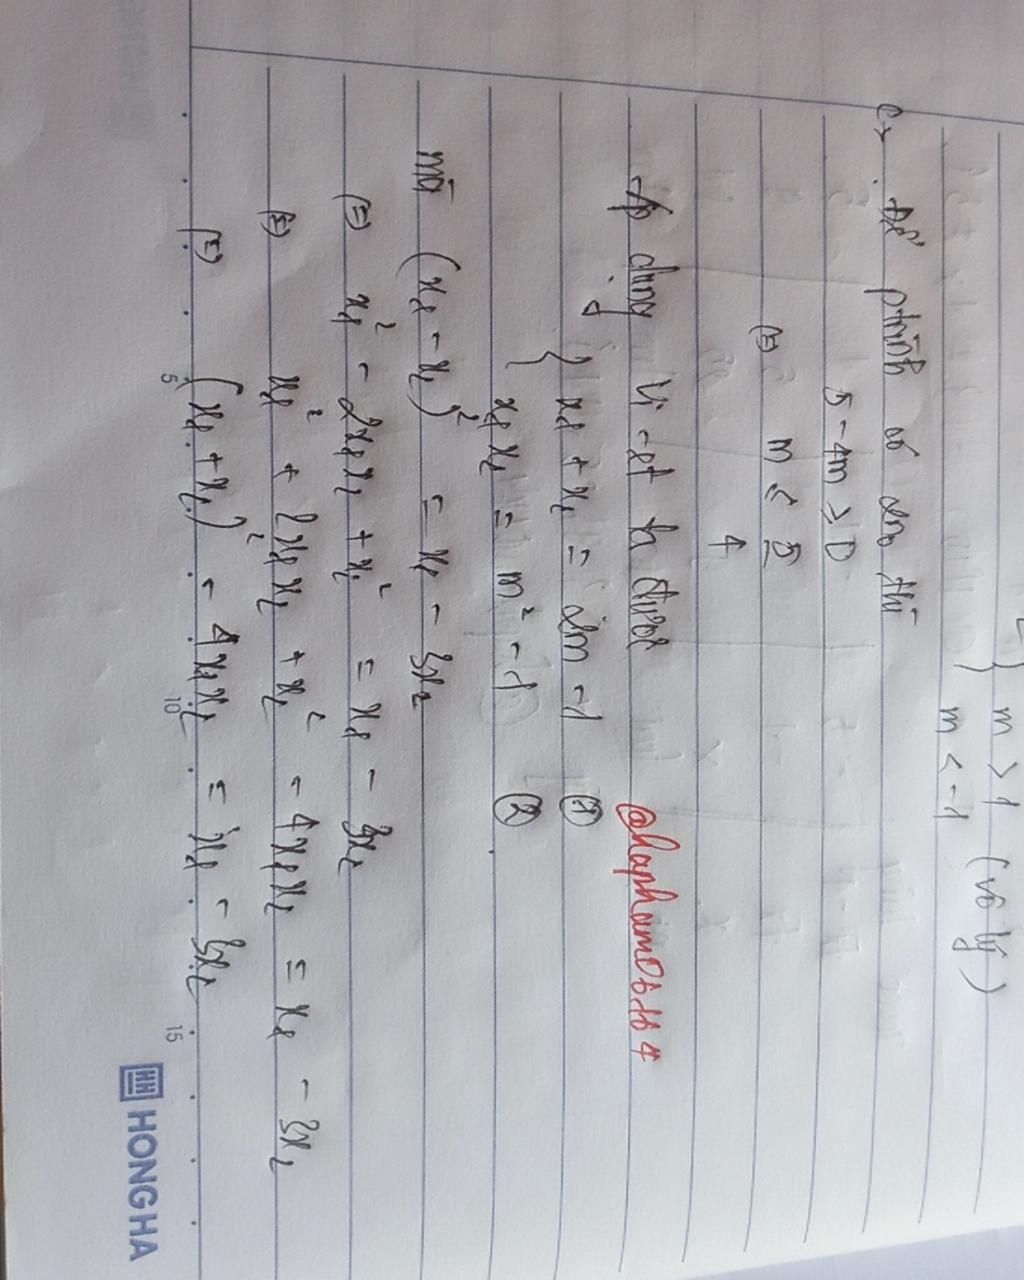 { m > 1
m < -1 (vô lý)
c, Để ptrình có 2n0 thì
5 - 4m > 0
(=) m < 5
4
Áp dụng Vi-ét ta được @haphamo6.16 4
{ x1 + x2 = 2m - 1 ①
x1x2 = m² - 1 ②
mà (x1 - x2)² = x1 - 3x2
(=) x1² - 2x1x2 + x2² = x1 - 3x2
(=) x1² + 2x1x2 + x2² - 4x1x2 = x1 - 3x2
(=) (x1 + x2)² - 4x1x2 = x1 - 3x2
5 10 15
HONG HA